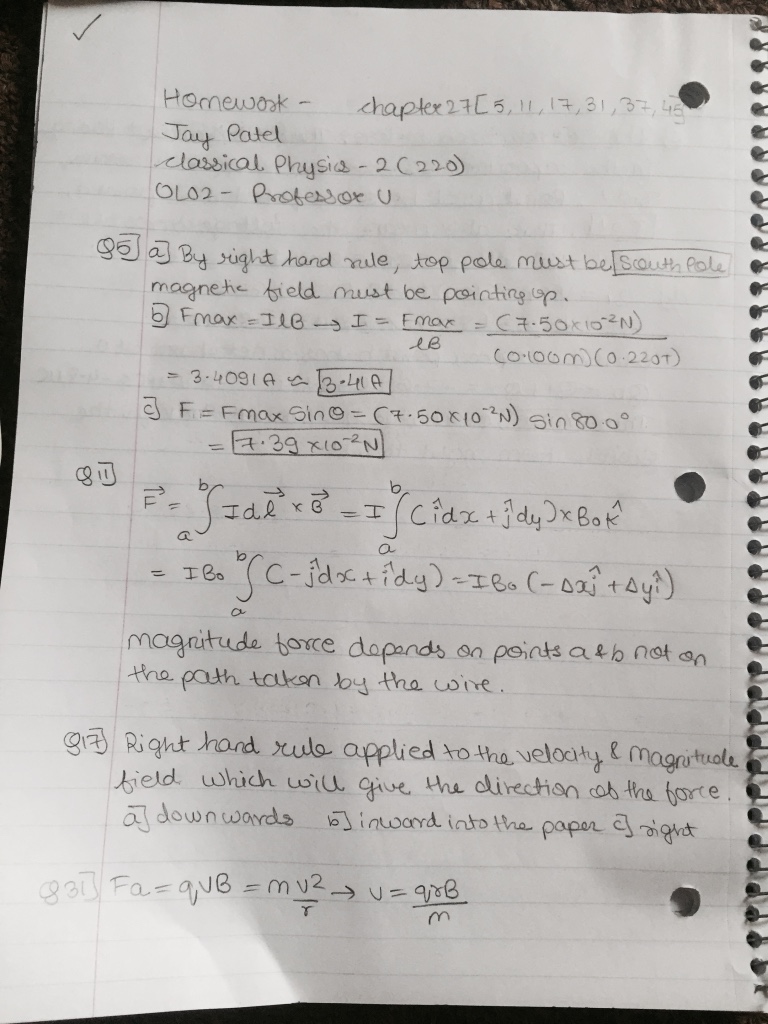 ✓
Homework - chapter 27 [5, 11, 17, 31, 37, 45
Jay Patel
classical Physics - 2 (220)
OL02 - Professor U
Q5] a] By right hand rule, top pole must be South Pole
magnetic field must be pointing up.
b] Fmax = IlB → I = Fmax/lB = (7.50x10⁻²N)/(0.100m)(0.220T)
= 3.4091A ≈ 3.41A
c] F = Fmax Sinθ = (7.50x10⁻²N) sin 80.0°
= 7.39 x10⁻²N
Q11] F⃗ = ∫ₐᵇ I dl⃗ x B⃗ = I ∫ₐᵇ (îdx + ĵdy) x B₀k̂
= IB₀ ∫ₐᵇ (-ĵdx + îdy) = IB₀ (-Δxĵ + Δyî)
magnitude force depends on points a & b not on
the path taken by the wire.
Q17] Right hand rule applied to the velocity & magnitude
field which will give the direction of the force.
a] downwards b] inward into the paper c] right
Q31] Fa = qvB = mv²/r → v = qrB/m